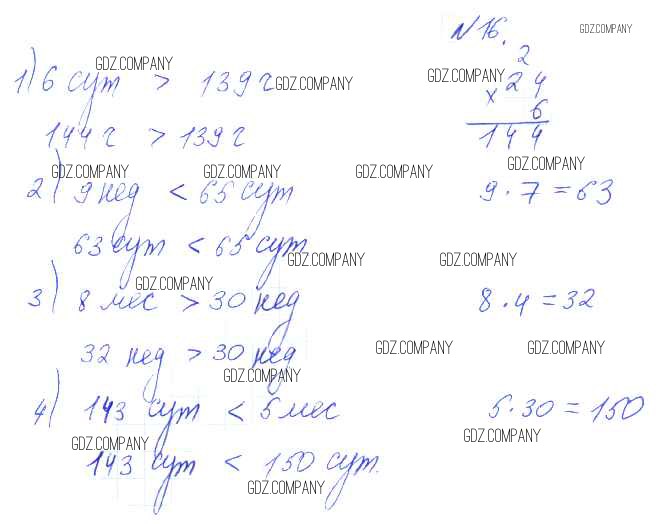 №16.
GDZ.COMPANY
GDZ.COMPANY
2
1) 6 сут > 139 ч
GDZ.COMPANY
GDZ.COMPANY
× 24
6
144 ч > 139 ч
144
GDZ.COMPANY
GDZ.COMPANY
GDZ.COMPANY
GDZ.COMPANY
2) 9 нед < 65 сут
9 · 7 = 63
63 сут < 65 сут
GDZ.COMPANY
GDZ.COMPANY
GDZ.COMPANY
3) 8 мес > 30 нед
8 · 4 = 32
32 нед > 30 нед
GDZ.COMPANY
GDZ.COMPANY
GDZ.COMPANY
4) 143 сут < 5 мес
5 · 30 = 150
GDZ.COMPANY
GDZ.COMPANY
143 сут < 150 сут.
GDZ.COMPANY